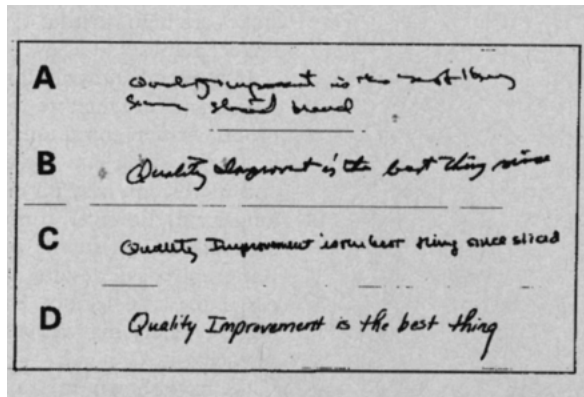 A
Quality Improvment is the best thing
since sliced bread
B
Quality Improvment is the best thing since
C
Quality Improvement is the best thing since sliced
D
Quality Improvement is the best thing